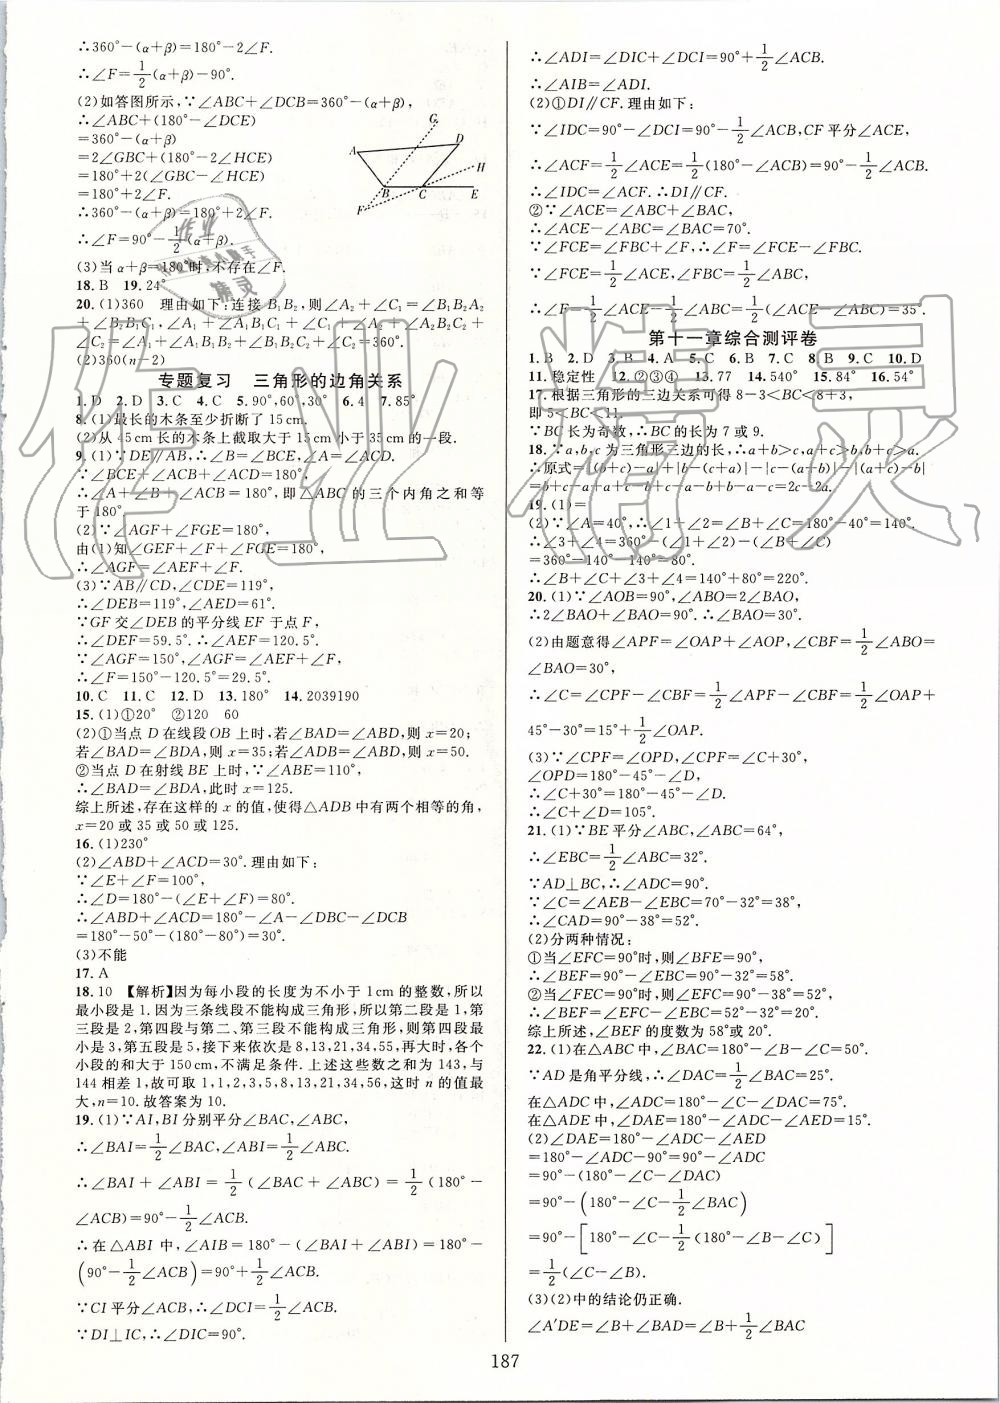 ∴360°−(α+β)=180°−2∠F.
∴∠F=1/2(α+β)−90°.
(2)如答图所示,∵∠ABC+∠DCB=360°−(α+β),
∴∠ABC+(180°−∠DCE)
=360°−(α+β)
=2∠GBC+(180°−2∠HCE)
=180°+2(∠GBC−∠HCE)
=180°+2∠F.
∴360°−(α+β)=180°+2∠F.
∴∠F=90°−1/2(α+β).
(3)当α+β=180°时,不存在∠F.
A G D H B C E F
18.B 19.24°
20.(1)360 理由如下:连接B₁B₂,则∠A₂+∠C₁=∠B₁B₂A₂
+∠B₂B₁C₁,∠A₁+
+∠C₂=∠A₁+
+∠C₂=360°
(2)360(n−2)
专题复习 三角形的边角关系
1.D 2.D 3.C 4.C 5.90°,60°,30° 6.4 7.85°
8.(1)最长的木条至少折断了15cm.
(2)从45cm长的木条上截取大于15cm小于35cm的一段.
9.(1)∵DE∥AB,∴∠B=∠BCE,∠A=∠ACD.
∵∠BCE+∠ACB+∠ACD=180°,
∴∠A+∠B+∠ACB=180°,即△ABC的三个内角之和等
于180°.
(2)∵∠AGF+∠FGE=180°,
由(1)知∠GEF+∠F+∠FGE=180°,
∴∠AGF=∠AEF+∠F.
(3)∵AB∥CD,∠CDE=119°,
∴∠DEB=119°,∠AED=61°.
∵GF交∠DEB的平分线EF于点F,
∴∠DEF=59.5°.∴∠AEF=120.5°.
∵∠AGF=150°,∠AGF=∠AEF+∠F,
∴∠F=150°−120.5°=29.5°.
10.C 11.C 12.D 13.180° 14.2039190
15.(1)①20° ②120 60
(2)①当点D在线段OB上时,若∠BAD=∠ABD,则x=20;
若∠BAD=∠BDA,则x=35;若∠ADB=∠ABD,则x=50.
②当点D在射线BE上时,∵∠ABE=110°,
∴∠BAD=∠BDA,此时x=125.
综上所述,存在这样的x的值,使得△ADB中有两个相等的角,
x=20或35或50或125.
16.(1)230°
(2)∠ABD+∠ACD=30°.理由如下:
∵∠E+∠F=100°,
∴∠D=180°−(∠E+∠F)=80°.
∴∠ABD+∠ACD=180°−∠A−∠DBC−∠DCB
=180°−50°−(180°−80°)=30°.
(3)不能
17.A
18.10 【解析】因为每小段的长度为不小于1cm的整数,所以
最小段是1.因为三条线段不能构成三角形,所以第二段是1,第
三段是2,第四段与第二、第三段不能构成三角形,则第四段最
小是3,第五段是5,接下来依次是8,13,21,34,55,再大时,各个
小段的和大于150cm,不满足条件.上述这些数之和为143,与
144相差1,故可取1,1,2,3,5,8,13,21,34,56,这时n的值最
大,n=10.故答案为10.
19.(1)∵AI,BI分别平分∠BAC,∠ABC,
∴∠BAI=1/2∠BAC,∠ABI=1/2∠ABC.
∴∠BAI+∠ABI=1/2(∠BAC+∠ABC)=1/2(180°−
∠ACB)=90°−1/2∠ACB.
∴在△ABI中,∠AIB=180°−(∠BAI+∠ABI)=180°−
(90°−1/2∠ACB)=90°+1/2∠ACB.
∵CI平分∠ACB,∴∠DCI=1/2∠ACB.
∵DI⊥IC,∴∠DIC=90°.
∴∠ADI=∠DIC+∠DCI=90°+1/2∠ACB.
∴∠AIB=∠ADI.
(2)①DI∥CF.理由如下:
∵∠IDC=90°−∠DCI=90°−1/2∠ACB,CF平分∠ACE,
∴∠ACF=1/2∠ACE=1/2(180°−∠ACB)=90°−1/2∠ACB.
∴∠IDC=∠ACF.∴DI∥CF.
②∵∠ACE=∠ABC+∠BAC,
∴∠ACE−∠ABC=∠BAC=70°.
∵∠FCE=∠FBC+∠F,∴∠F=∠FCE−∠FBC.
∵∠FCE=1/2∠ACE,∠FBC=1/2∠ABC,
∴∠F=1/2∠ACE−1/2∠ABC=1/2(∠ACE−∠ABC)=35°.
第十一章综合测评卷
1.B 2.D 3.B 4.A 5.C 6.B 7.C 8.B 9.C 10.D
11.稳定性 12.②③④ 13.77 14.540° 15.84° 16.54°
17.根据三角形的三边关系可得8−3<BC<8+3,
即5<BC<11.
∵BC长为奇数,∴BC的长为7或9.
18.∵a,b,c为三角形三边的长,∴a+b>c,a+c>b,b+c>a.
∴原式=|(b+c)−a|+|b−(c+a)|−|c−(a+b)|−|(a+c)−b|
=b+c−a+a+c−b+c−a−b+b−a−c=2c−2a.
19.(1)=
(2)∵∠A=40°,∴∠1+∠2=∠B+∠C=180°−40°=140°.
∴∠3+∠4=360°−(∠1+∠2)−(∠B+∠C)
=360°−140°−140°=80°.
∴∠B+∠C+∠3+∠4=140°+80°=220°.
20.(1)∵∠AOB=90°,∠ABO=2∠BAO,
∴2∠BAO+∠BAO=90°.∴∠BAO=30°.
(2)由题意得∠APF=∠OAP+∠AOP,∠CBF=1/2∠ABO=
∠BAO=30°,
∴∠C=∠CPF−∠CBF=1/2∠APF−∠CBF=1/2∠OAP+
45°−30°=15°+1/2∠OAP.
(3)∵∠CPF=∠OPD,∠CPF=∠C+30°,
∠OPD=180°−45°−∠D.
∴∠C+30°=180°−45°−∠D.
∴∠C+∠D=105°.
21.(1)∵BE平分∠ABC,∠ABC=64°,
∴∠EBC=1/2∠ABC=32°.
∵AD⊥BC,∴∠ADC=90°.
∵∠C=∠AEB−∠EBC=70°−32°=38°,
∴∠CAD=90°−38°=52°.
(2)分两种情况:
①当∠EFC=90°时,则∠BFE=90°.
∴∠BEF=90°−∠EBC=90°−32°=58°.
②当∠FEC=90°时,则∠EFC=90°−38°=52°.
∴∠BEF=∠EFC−∠EBC=52°−32°=20°.
综上所述,∠BEF的度数为58°或20°.
22.(1)在△ABC中,∠BAC=180°−∠B−∠C=50°.
∵AD是角平分线,∴∠DAC=1/2∠BAC=25°.
在△ADC中,∠ADC=180°−∠C−∠DAC=75°.
在△ADE中,∠DAE=180°−∠ADC−∠AED=15°.
(2)∠DAE=180°−∠ADC−∠AED
=180°−∠ADC−90°=90°−∠ADC
=90°−(180°−∠C−∠DAC)
=90°−(180°−∠C−1/2∠BAC)
=90°−[180°−∠C−1/2(180°−∠B−∠C)]
=1/2(∠C−∠B).
(3)(2)中的结论仍正确.
∠A′DE=∠B+∠BAD=∠B+1/2∠BAC
187
作业精灵